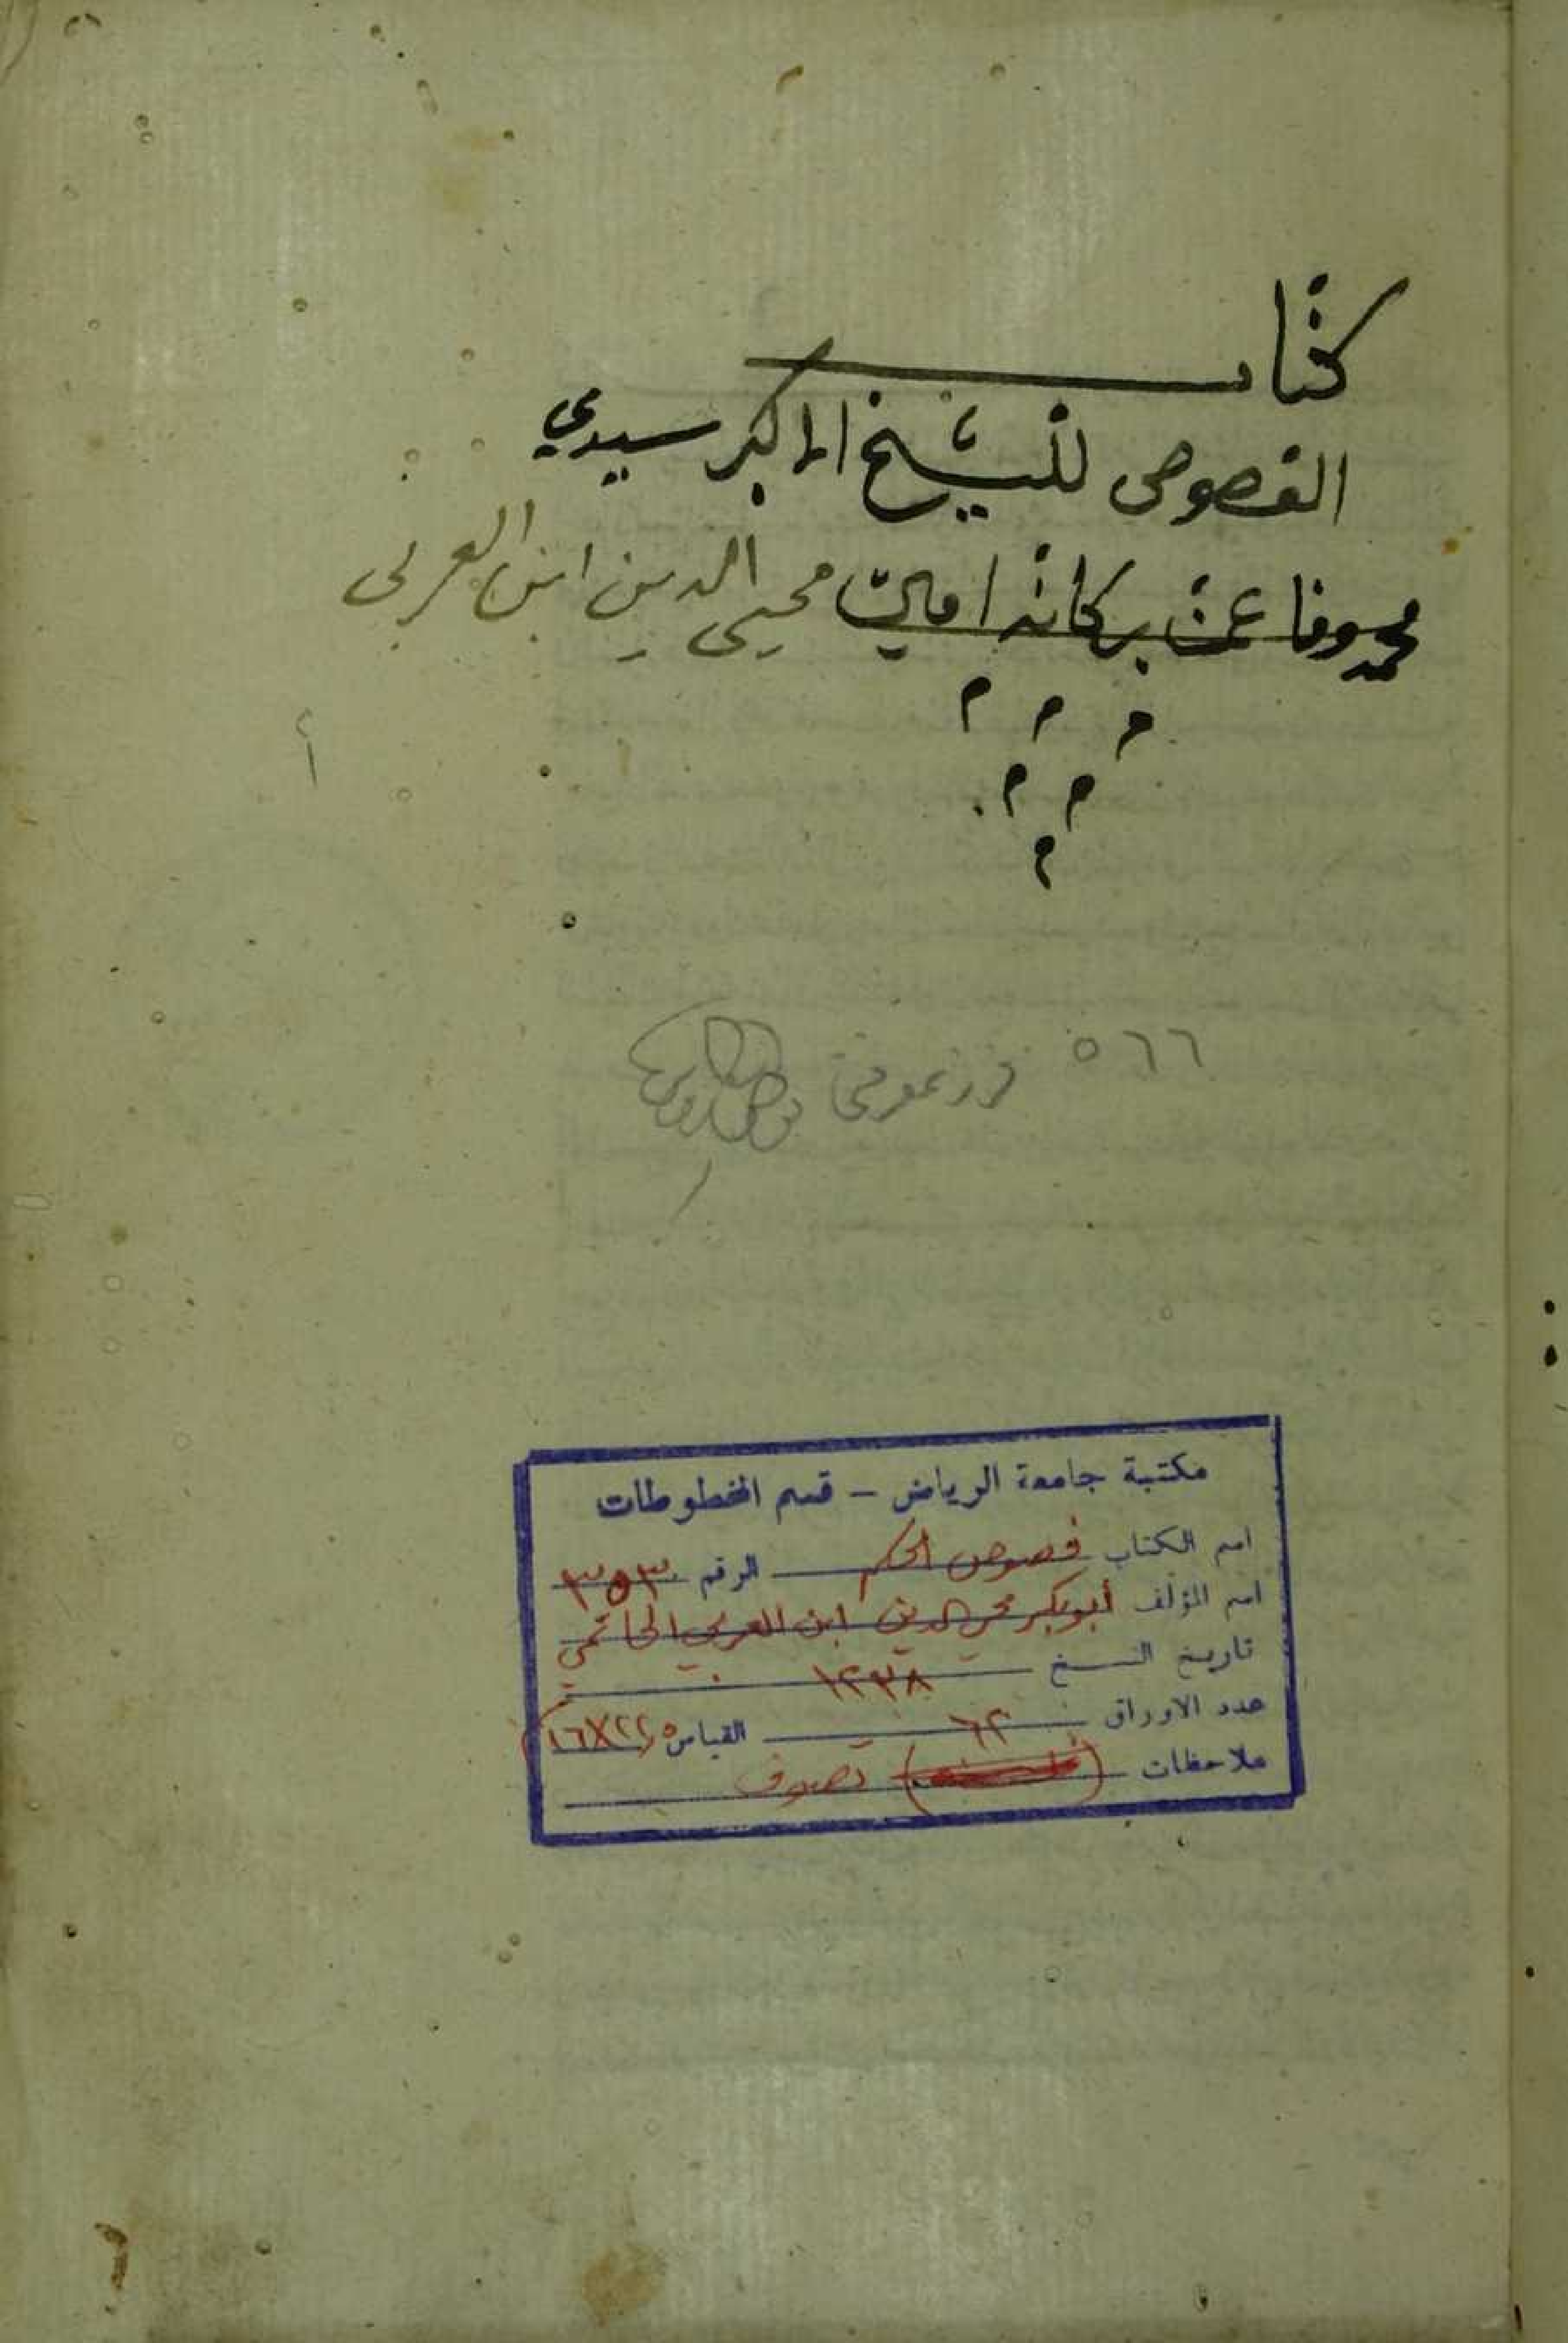 كتاب
الفصوص للشيخ الاكبر سيدي
محمد وفا عمت بركاته امين محيى الدين ابن العربى
م م م
م م
م
أ
٥٦٦
مكتبة جامعة الرياض – قسم المخطوطات
اسم الكتاب فصوص الحكم الرقم ٣٥٣
اسم المؤلف أبو بكر محي الدين ابن العربي الحاتمي
تاريخ النسخ ١٢٣٨
عدد الاوراق ٦٢ القياس ٢٢٫٥×١٦
ملاحظات ( ) تصوف